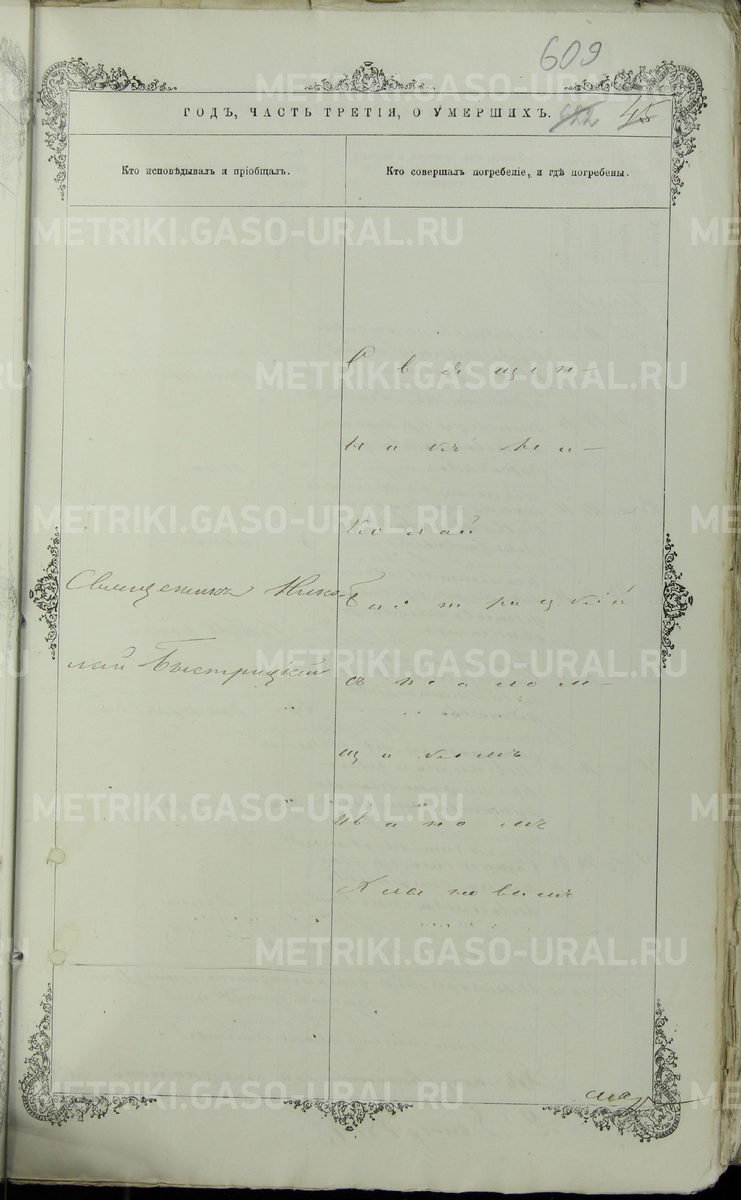 609
ГОДЪ, ЧАСТЬ ТРЕТІЯ, О УМЕРШИХЪ. 45
Кто исповѣдывалъ и пріобщалъ.
Кто совершалъ погребеніе, и гдѣ погребены.
Священникъ Нико-
лай Быстрицкій
Священ-
никъ Ни-
колай
Быстрицкій
съ псалом-
щикомъ
METRIKI.GASO-URAL.RU